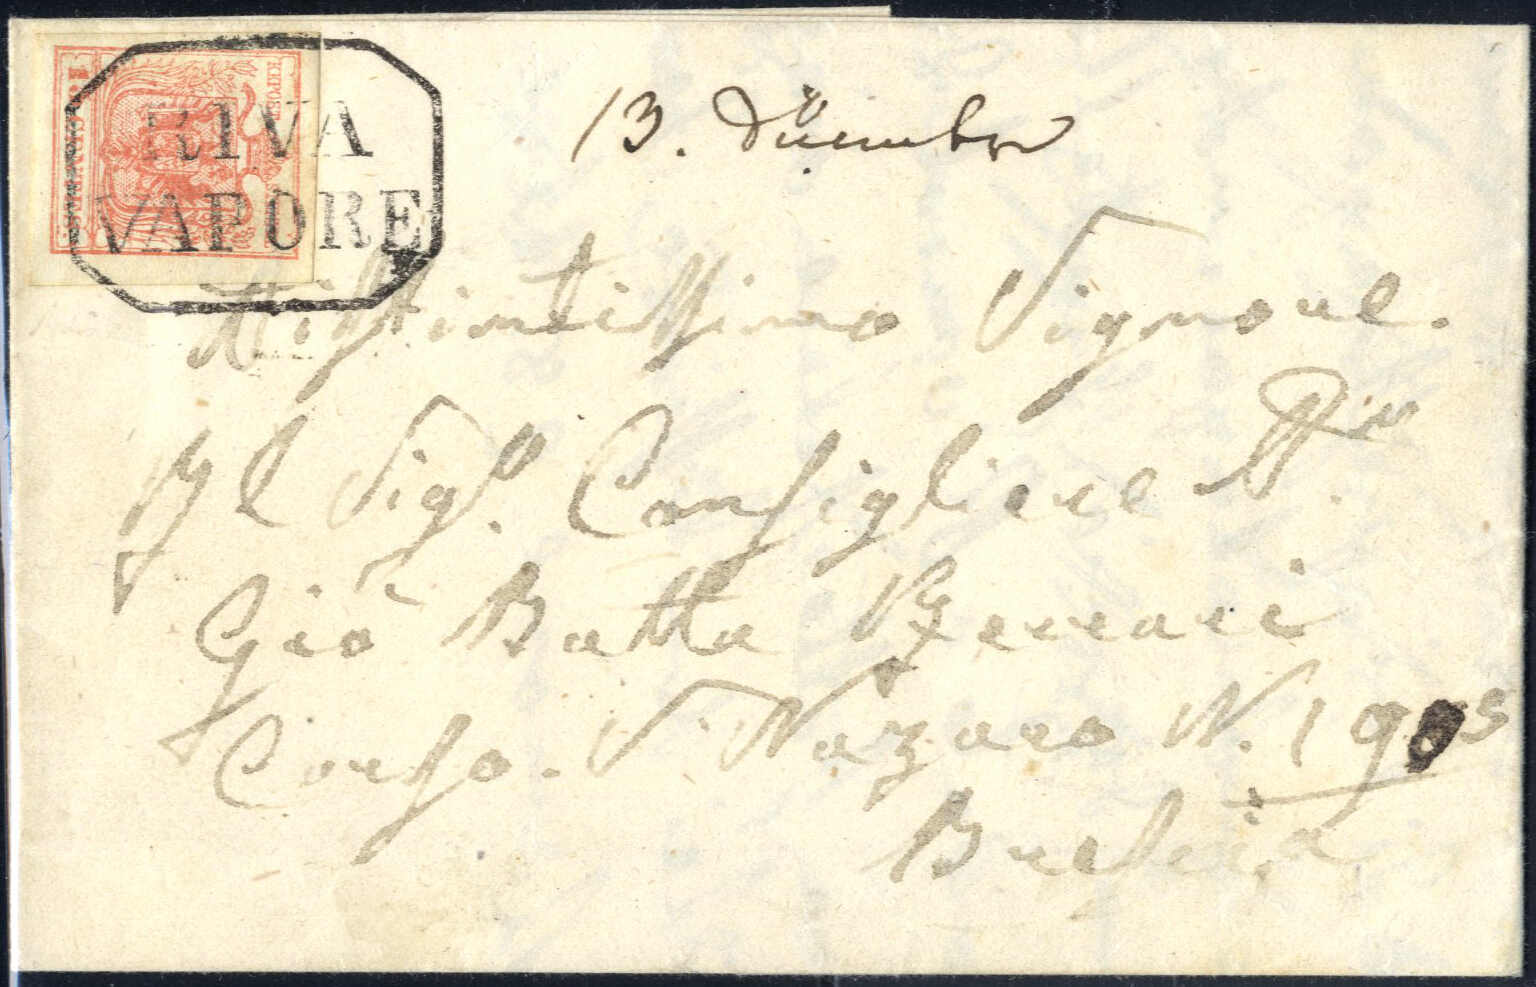 RIVA
VAPORE
13. Dicembre
Distintissimo Signore.
Al Sigr. Consigliere
Gio Batta Ferrari
Corso. S. Nazaro N. 1905
Brescia